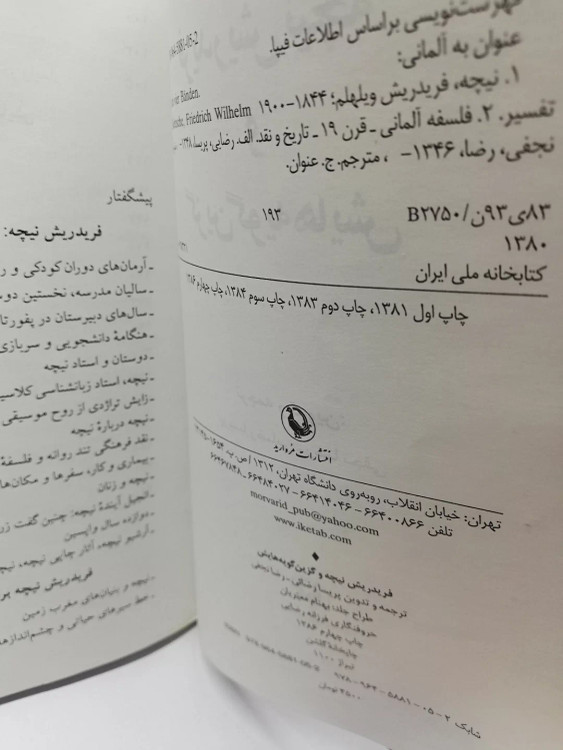 فهرست‌نویسی براساس اطلاعات فیپا.
عنوان به آلمانی:
۱. نیچه، فریدریش ویلهلم؛ ۱۸۴۴-۱۹۰۰ Friedrich Wilhelm
تفسیر. ۲. فلسفه آلمانی ـ قرن ۱۹ ـ تاریخ و نقد. الف. رضایی، پریسا، ۱۳۴۸-
نجفی، رضا، ۱۳۴۶- ، مترجم. ج. عنوان.
۸۳ی۹۳ن/B۲۷۵۰ ۱۹۳
۱۳۸۰
کتابخانه ملی ایران
چاپ اول ۱۳۸۱، چاپ دوم ۱۳۸۳، چاپ سوم ۱۳۸۴، چاپ چهارم ۱۳۸۶
انتشارات مروارید
تهران: خیابان انقلاب، روبه‌روی دانشگاه تهران، ۱۳۱۲/ص.پ. ۱۶۵۴-۱۳۱۴۵
تلفن ۶۶۴۰۰۸۶۶ - ۶۶۴۱۴۰۴۶ - ۶۶۴۸۴۰۲۷ - ۶۶۴۶۷۸۴۸
morvarid_pub@yahoo.com
www.iketab.com
فریدریش نیچه و گزین‌گویه‌هایش
ترجمه و تدوین پریسا رضائی ـ رضا نجفی
طراح جلد بهنام معیریان
حروفنگاری فرزانه رضایی
چاپ چهارم ۱۳۸۶
چاپخانه گلشن
تیراژ ۱۱۰۰
شابک ۲-۰۵-۵۸۸۱-۹۶۴-۹۷۸
۳۵۰۰ تومان
پیشگفتار
فریدریش نیچه:
ـ آرمان‌های دوران کودکی و
ـ سالیان مدرسه، نخستین
ـ سال‌های دبیرستان در
ـ هنگامهٔ دانشجویی و سربازی
ـ دوستان و استاد نیچه
ـ نیچه، استاد زبانشناسی
ـ زایش تراژدی از روح موسیقی
ـ نیچه دربارهٔ نیچه
ـ نقد فرهنگی تند روانه و فلسفهٔ
ـ بیماری و کار، سفرها و مکان‌ها
ـ نیچه و زنان
ـ انجیل آیندهٔ نیچه: چنین گفت
ـ دوازده سال واپسین
ـ آرشیو نیچه، آثار چاپی نیچه،
فریدریش نیچه
ـ نیچه و بنیان‌های مغرب زمین
ـ خط سیرهای حیاتی و